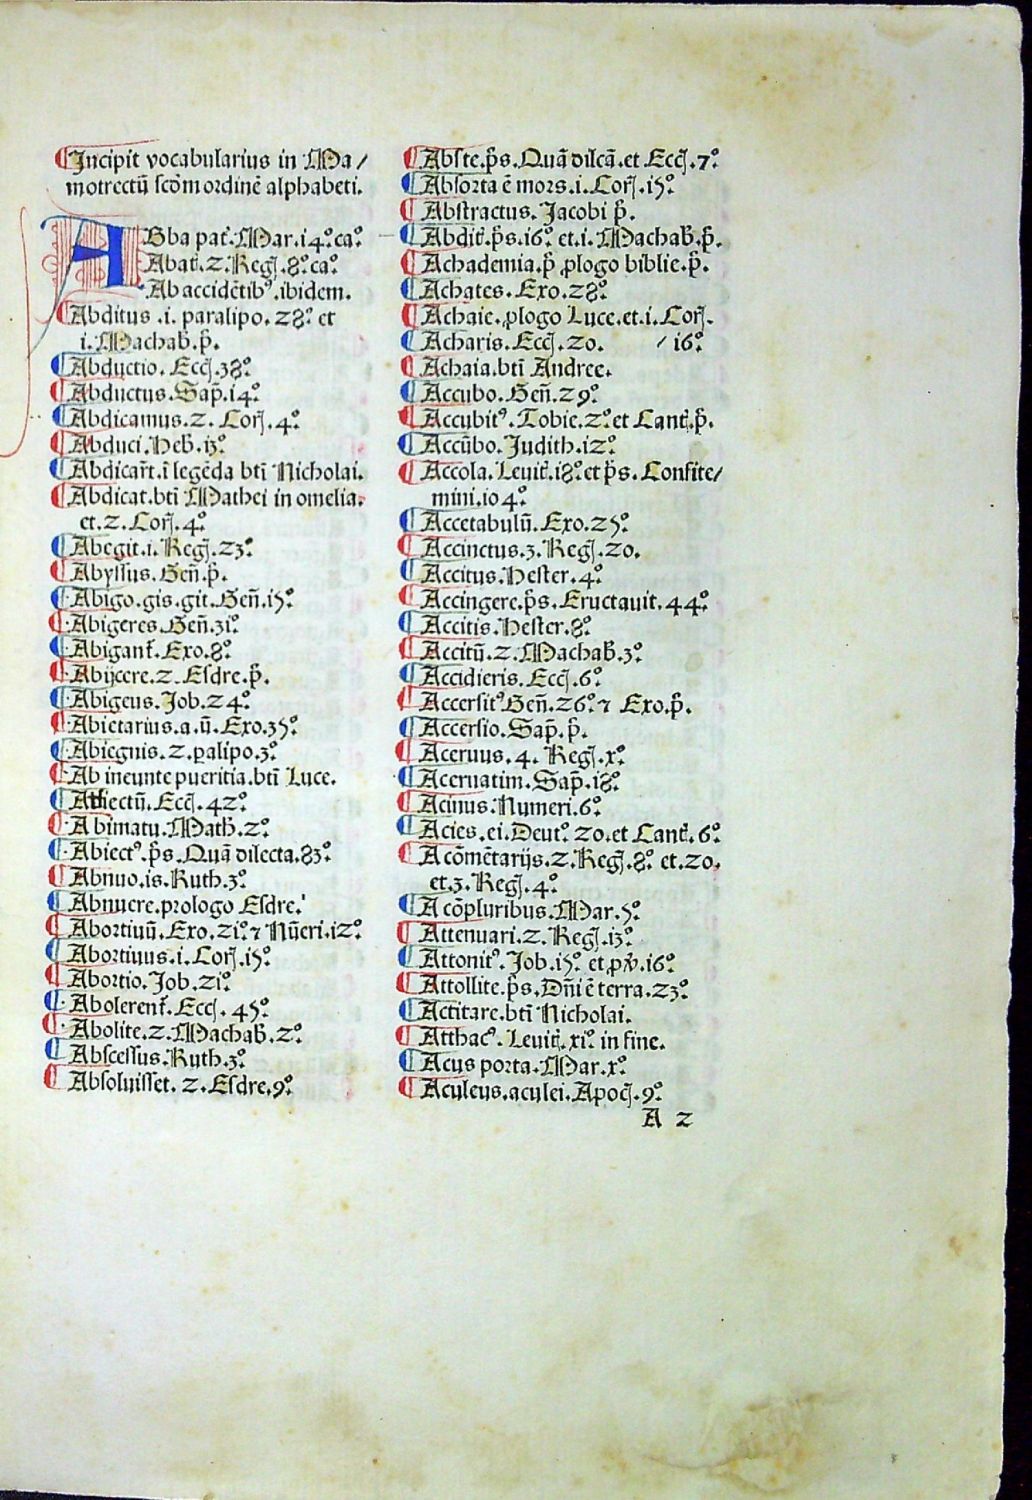 Incipit vocabularius in Ma/
motrectū scḋm ordinē alphabeti.
ABba pat̄. Mar. i4.° ca.°
Abat̄. 2. Regꝭ. 8.° ca.°
Ab accidētibꝰ. ibidem.
Abditus. i. paralipo. 28.° et
i. Machab̄. p̄.
Abductio. Eccꝭ. 38.°
Abductus. Sap̄. i4.°
Abdicamus. 2. Corꝭ. 4.°
Abduci. Heb̄. i3.°
Abdicar̄t. ī legēda btī Nicholai.
Abdicat. btī Mathei in omelia.
et. 2. Corꝭ. 4.°
Abegit. i. Regꝭ. 23.°
Abyssus. Geñ. p̄.
Abigo. gis. git. Geñ. i5.°
Abigeres. Geñ. 3i.°
Abigant̄. Exo. 8.°
Abijcere. 2. Esdre. p̄.
Abigeus. Job. 24.°
Abietarius. a. ū. Exo. 35.°
Abiegnis. 2. ꝑalipo. 3.°
Ab ineunte pueritia. btī Luce.
Abiectū. Eccꝭ. 42.°
A bimatu. Math̄. 2.°
Abiectꝰ. p̄s. Quā dilecta. 83.°
Abnuo. is. Ruth. 3.°
Abnuere. prologo Esdre.
Abortiuū. Exo. 2i.° ⁊ Nūeri. i2.°
Abortiuus. i. Corꝭ. i5.°
Abortio. Job. 2i.°
Abolerent̄. Eccꝭ. 45.°
Abolite. 2. Machab̄. 2.°
Abscessus. Ruth. 3.°
Absoluisset. 2. Esdre. 9.°
Abste. p̄s. Quā dilcā. et Eccꝭ. 7.°
Absorta ē mors. i. Corꝭ. i5.°
Abstractus. Jacobi p̄.
Abdit̄. p̄s. i6.° et. i. Machab̄. p̄.
Achademia. p̄ ꝓlogo biblie. p̄.
Achates. Exo. 28.°
Achaie. ꝓlogo Luce. et. i. Corꝭ.
Acharis. Eccꝭ. 20. / i6.°
Achaia. btī Andree.
Accubo. Geñ. 29.°
Accubitꝰ. Tobie. 2.° et Cant̄. p̄.
Accūbo. Judith. i2.°
Accola. Leuit̄. i8.° et p̄s. Confite/
mini. io4.°
Accetabulū. Exo. 25.°
Accinctus. 3. Regꝭ. 20.
Accitus. Hester. 4.°
Accingere. p̄s. Eructauit. 44.°
Accitis. Hester. 8.°
Accitū. 2. Machab̄. 3.°
Accidieris. Eccꝭ. 6.°
Accersitꝰ Geñ. 26.° ⁊ Exo. p̄.
Accersio. Sap̄. p̄.
Aceruus. 4. Regꝭ. x.°
Aceruatim. Sap̄. i8.°
Acinus. Numeri. 6.°
Acies. ei. Deut.° 20. et Cant̄. 6.°
A cōmētarijs. 2. Regꝭ. 8.° et. 20.
et. 3. Regꝭ. 4.°
A cōpluribus. Mar. 5.°
Attenuari. 2. Regꝭ. i3.°
Attonitꝰ. Job. i5.° et ꝓv̄. i6.°
Attollite. p̄s. Dn̄i ē terra. 23.°
Actitare. btī Nicholai.
Atthacꝰ. Leuit̄. xi.° in fine.
Acus porta. Mar. x.°
Aculeus. aculei. Apocꝭ. 9.°
A 2